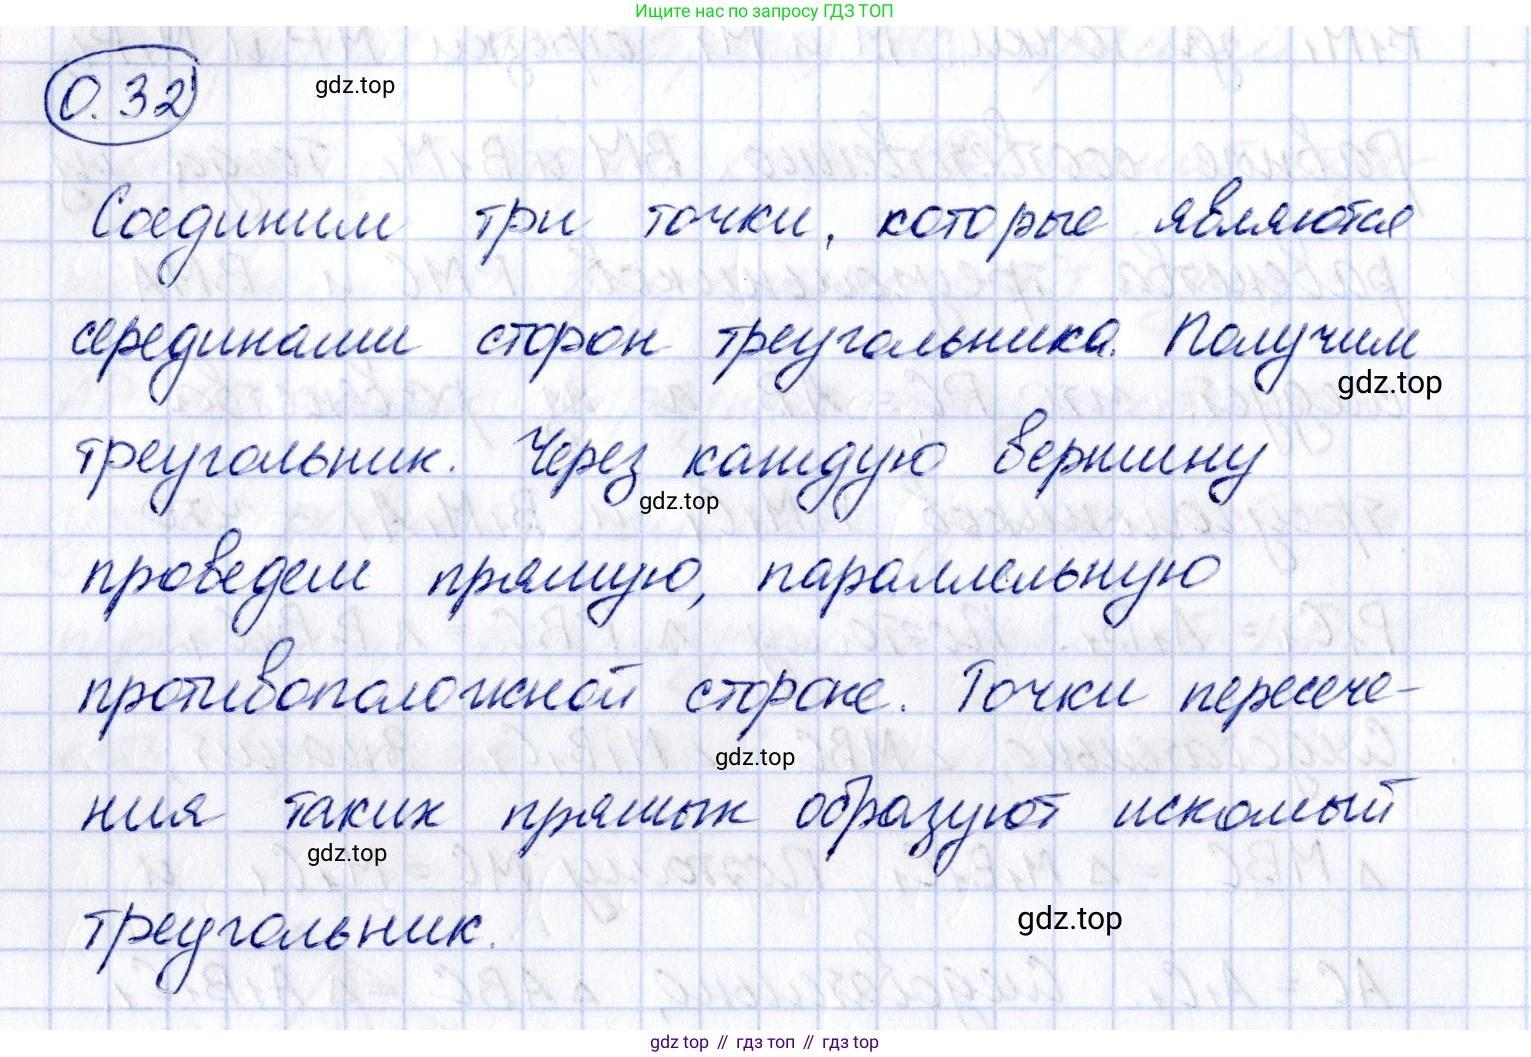 Ищите нас по запросу ГДЗ ТОП
0.32
gdz.top
Соединим три точки, которые являются
серединами сторон треугольника. Получим
gdz.top
треугольник. Через каждую вершину
gdz.top
проведем прямую, параллельную
противоположной стороне. Точки пересече-
gdz.top
ния таких прямых образуют искомый
gdz.top
треугольник.
gdz.top
gdz top // гдз топ // гдз top